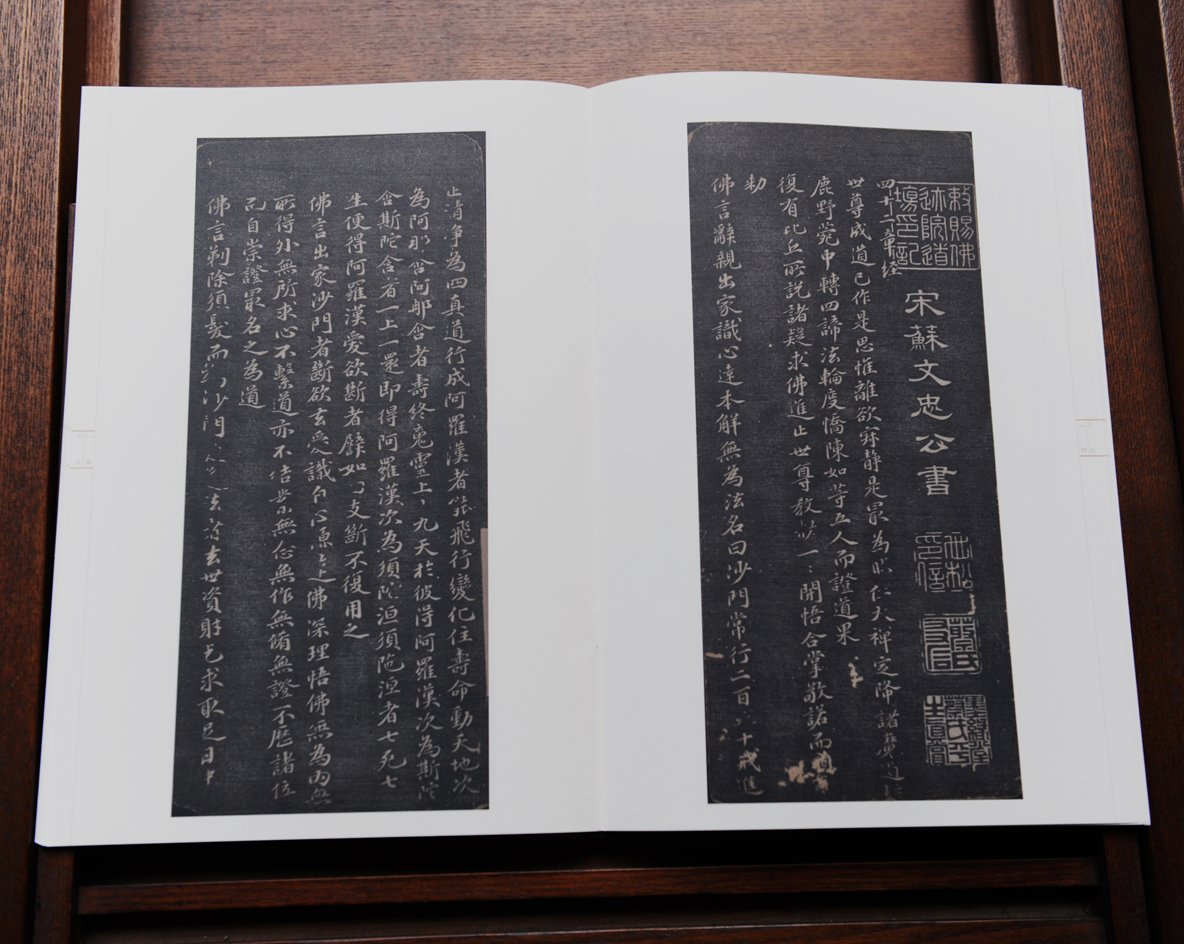 敕賜佛
迹院道
場印記
宋蘇文忠公書
四十二章經
世尊成道已作是思惟離欲寂静是最為勝住大禪定降諸魔道
鹿野苑中轉四諦法輪度憍陳如等五人而證道果
復有比丘所說諸疑求佛進止世尊教敕一一開悟合掌敬諾而順
勅
佛言辭親出家識心達本解無為法名曰沙門常行二百十戒進
止清淨為四真道行成阿羅漢者能飛行變化住壽命動天地次
為阿那含阿那含者壽終魂靈上十九天於彼得阿羅漢次為斯陀
含斯陀含者一上一還即得阿羅漢次為須陀洹須陀洹者七死七
生便得阿羅漢愛欲斷者譬如支斷不復用之
佛言出家沙門者斷欲去愛識自心源達佛深理悟佛無為内無
所得外無所求心不繫道亦不结業無念無作無脩無證不歷諸位
而自崇證最名之為道
佛言剃除須髮而為沙門法者去世資財乞求取足日中